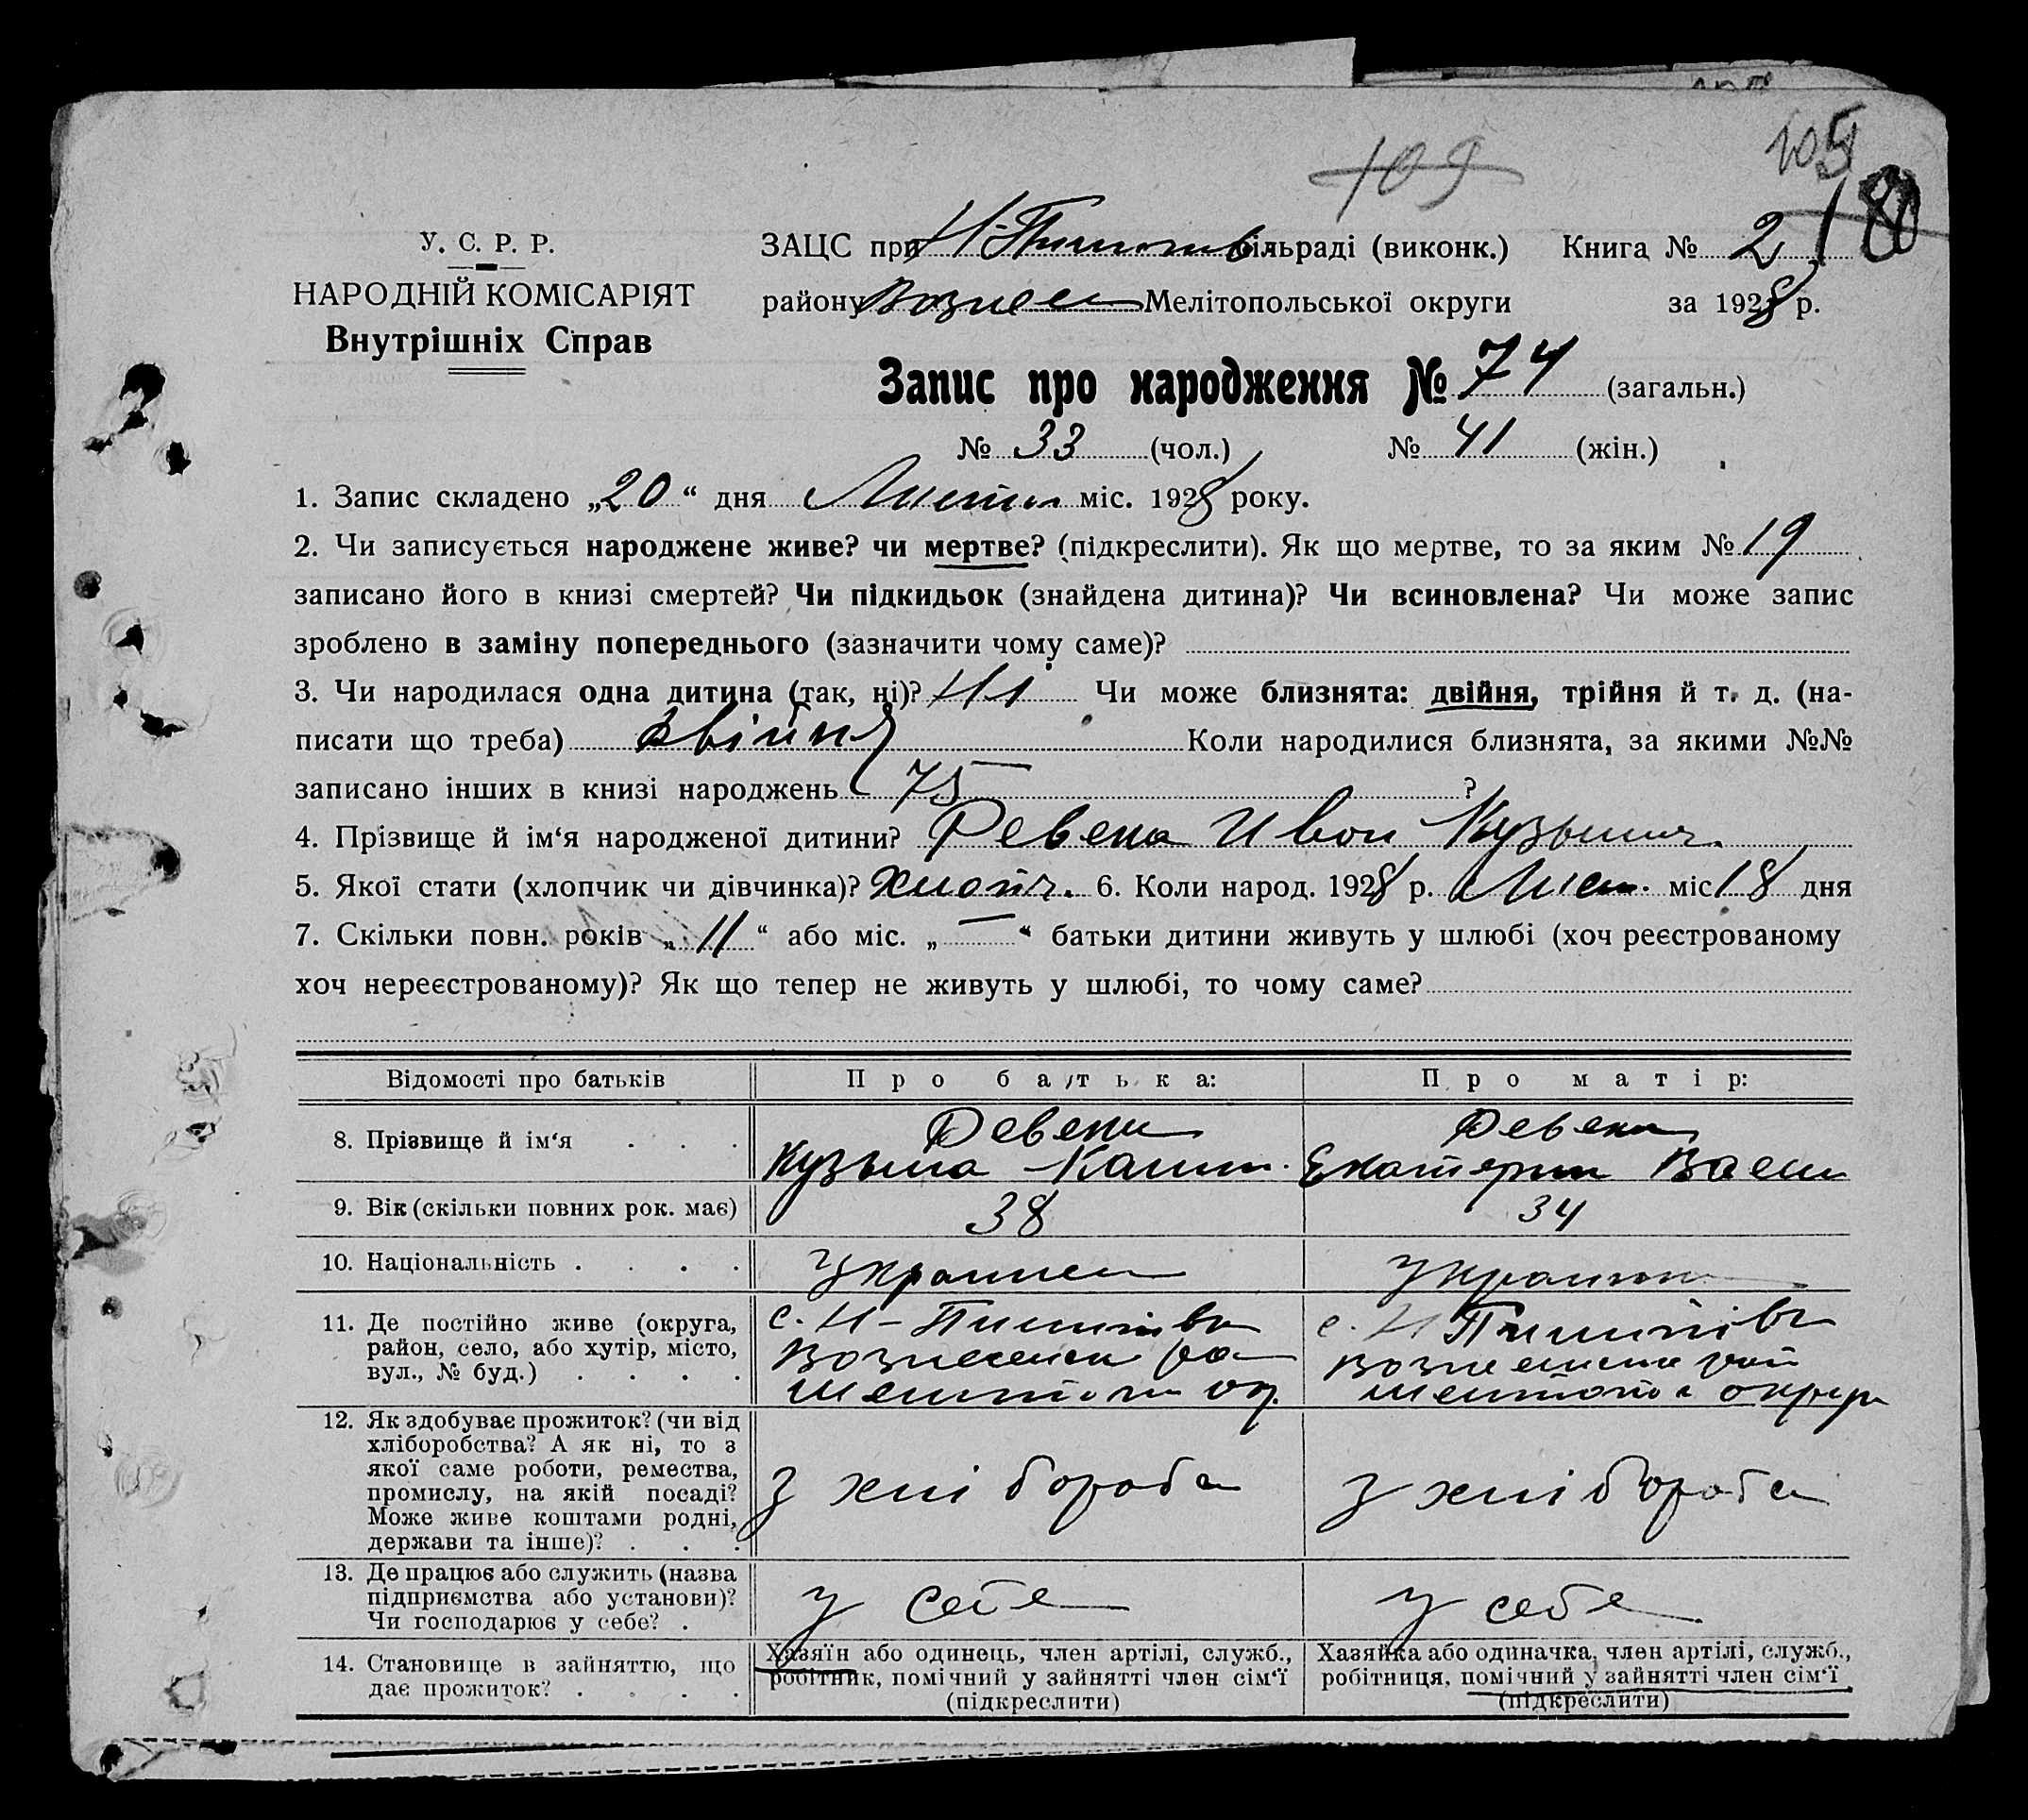 109
105
180
У. С. Р. Р.
НАРОДНІЙ КОМІСАРІЯТ
Внутрішніх Справ
ЗАЦС при Н-Пилипів сільраді (виконк.) Книга № 2
району Вознес Мелітопольської округи за 1928 р.
Запис про народження № 74 (загальн.)
№ 33 (чол.) № 41 (жін.)
1. Запис складено „20“ дня Листоп міс. 1928 року.
2. Чи записується народжене живе? чи мертве? (підкреслити). Як що мертве, то за яким № 19
записано його в книзі смертей? Чи підкидьок (знайдена дитина)? Чи всиновлена? Чи може запис
зроблено в заміну попереднього (зазначити чому саме)?
3. Чи народилася одна дитина (так, ні)? Ні Чи може близнята: двійня, трійня й т. д. (на-
писати що треба) двійня Коли народилися близнята, за якими №№
записано інших в книзі народжень 75 ?
4. Прізвище й ім‘я народженої дитини? Ревека Ивон Кузьмич
5. Якої стати (хлопчик чи дівчинка)? хлопч. 6. Коли народ. 1928 р. Лист. міс 18 дня
7. Скільки повн. років „11“ або міс. „—“ батьки дитини живуть у шлюбі (хоч реєстрованому
хоч нереєстрованому)? Як що тепер не живуть у шлюбі, то чому саме?
Відомості про батьків Про батька: Про матір:
8. Прізвище й ім‘я . . . Ревека Ревека
Кузьма Екатерин Васил
9. Вік (скільки повних рок. має) 38 34
10. Національність . . . . Українец Українка
11. Де постійно живе (округа, с. Н-Пилипівка с. Н Пилипівка
район, село, або хутір, місто, Вознесенск ра Вознесенск рай
вул., № буд.) . . . . Мелитопол ок Мелитопол округи
12. Як здобуває прожиток? (чи від
хліборобства? А як ні, то з
якої саме роботи, ремества,
промислу, на якій посаді? З хліборобс З хліборобс
Може живе коштами родні,
держави та інше)? . . .
13. Де працює або служить (назва
підприємства або установи)? у себе у себе
Чи господарює у себе? .
14. Становище в зайняттю, що Хазяїн або одинець, член артілі, служб., Хазяйка або одиначка, член артілі, служб.,
дає прожиток? . . . . робітник, помічний у зайнятті член сім‘ї робітниця, помічний у зайнятті член сім‘ї
(підкреслити) (підкреслити)